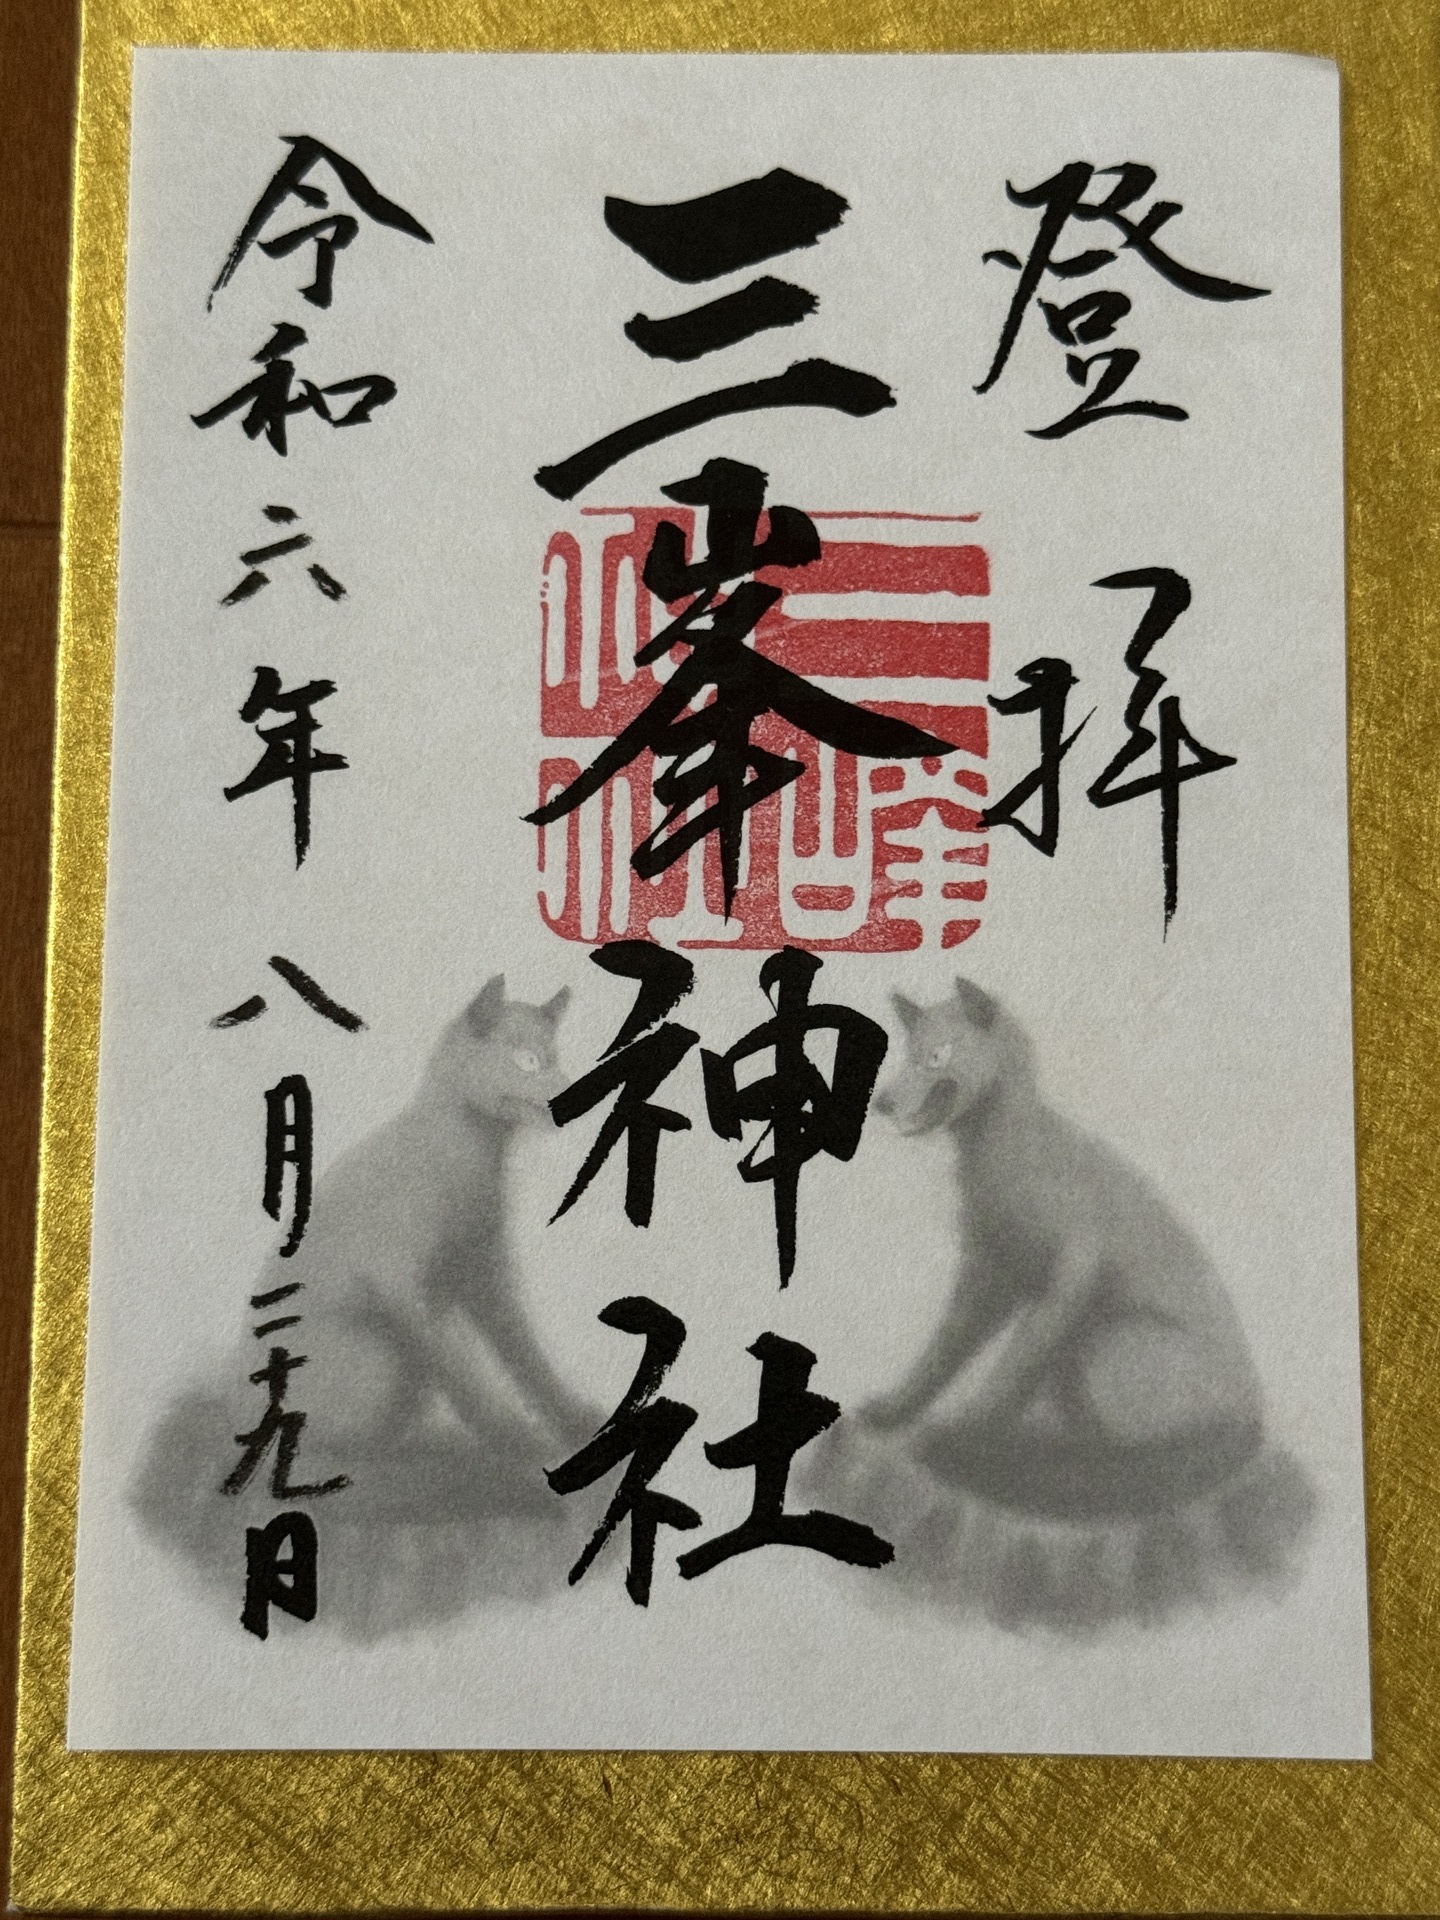 登拝
三峯神社
三峰神社
令和六年八月二十九日